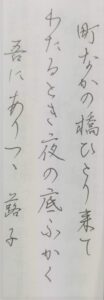 町なかの橋ひとり来て
わたるとき夜の底ふかく
吾にありつゝ 蕗子